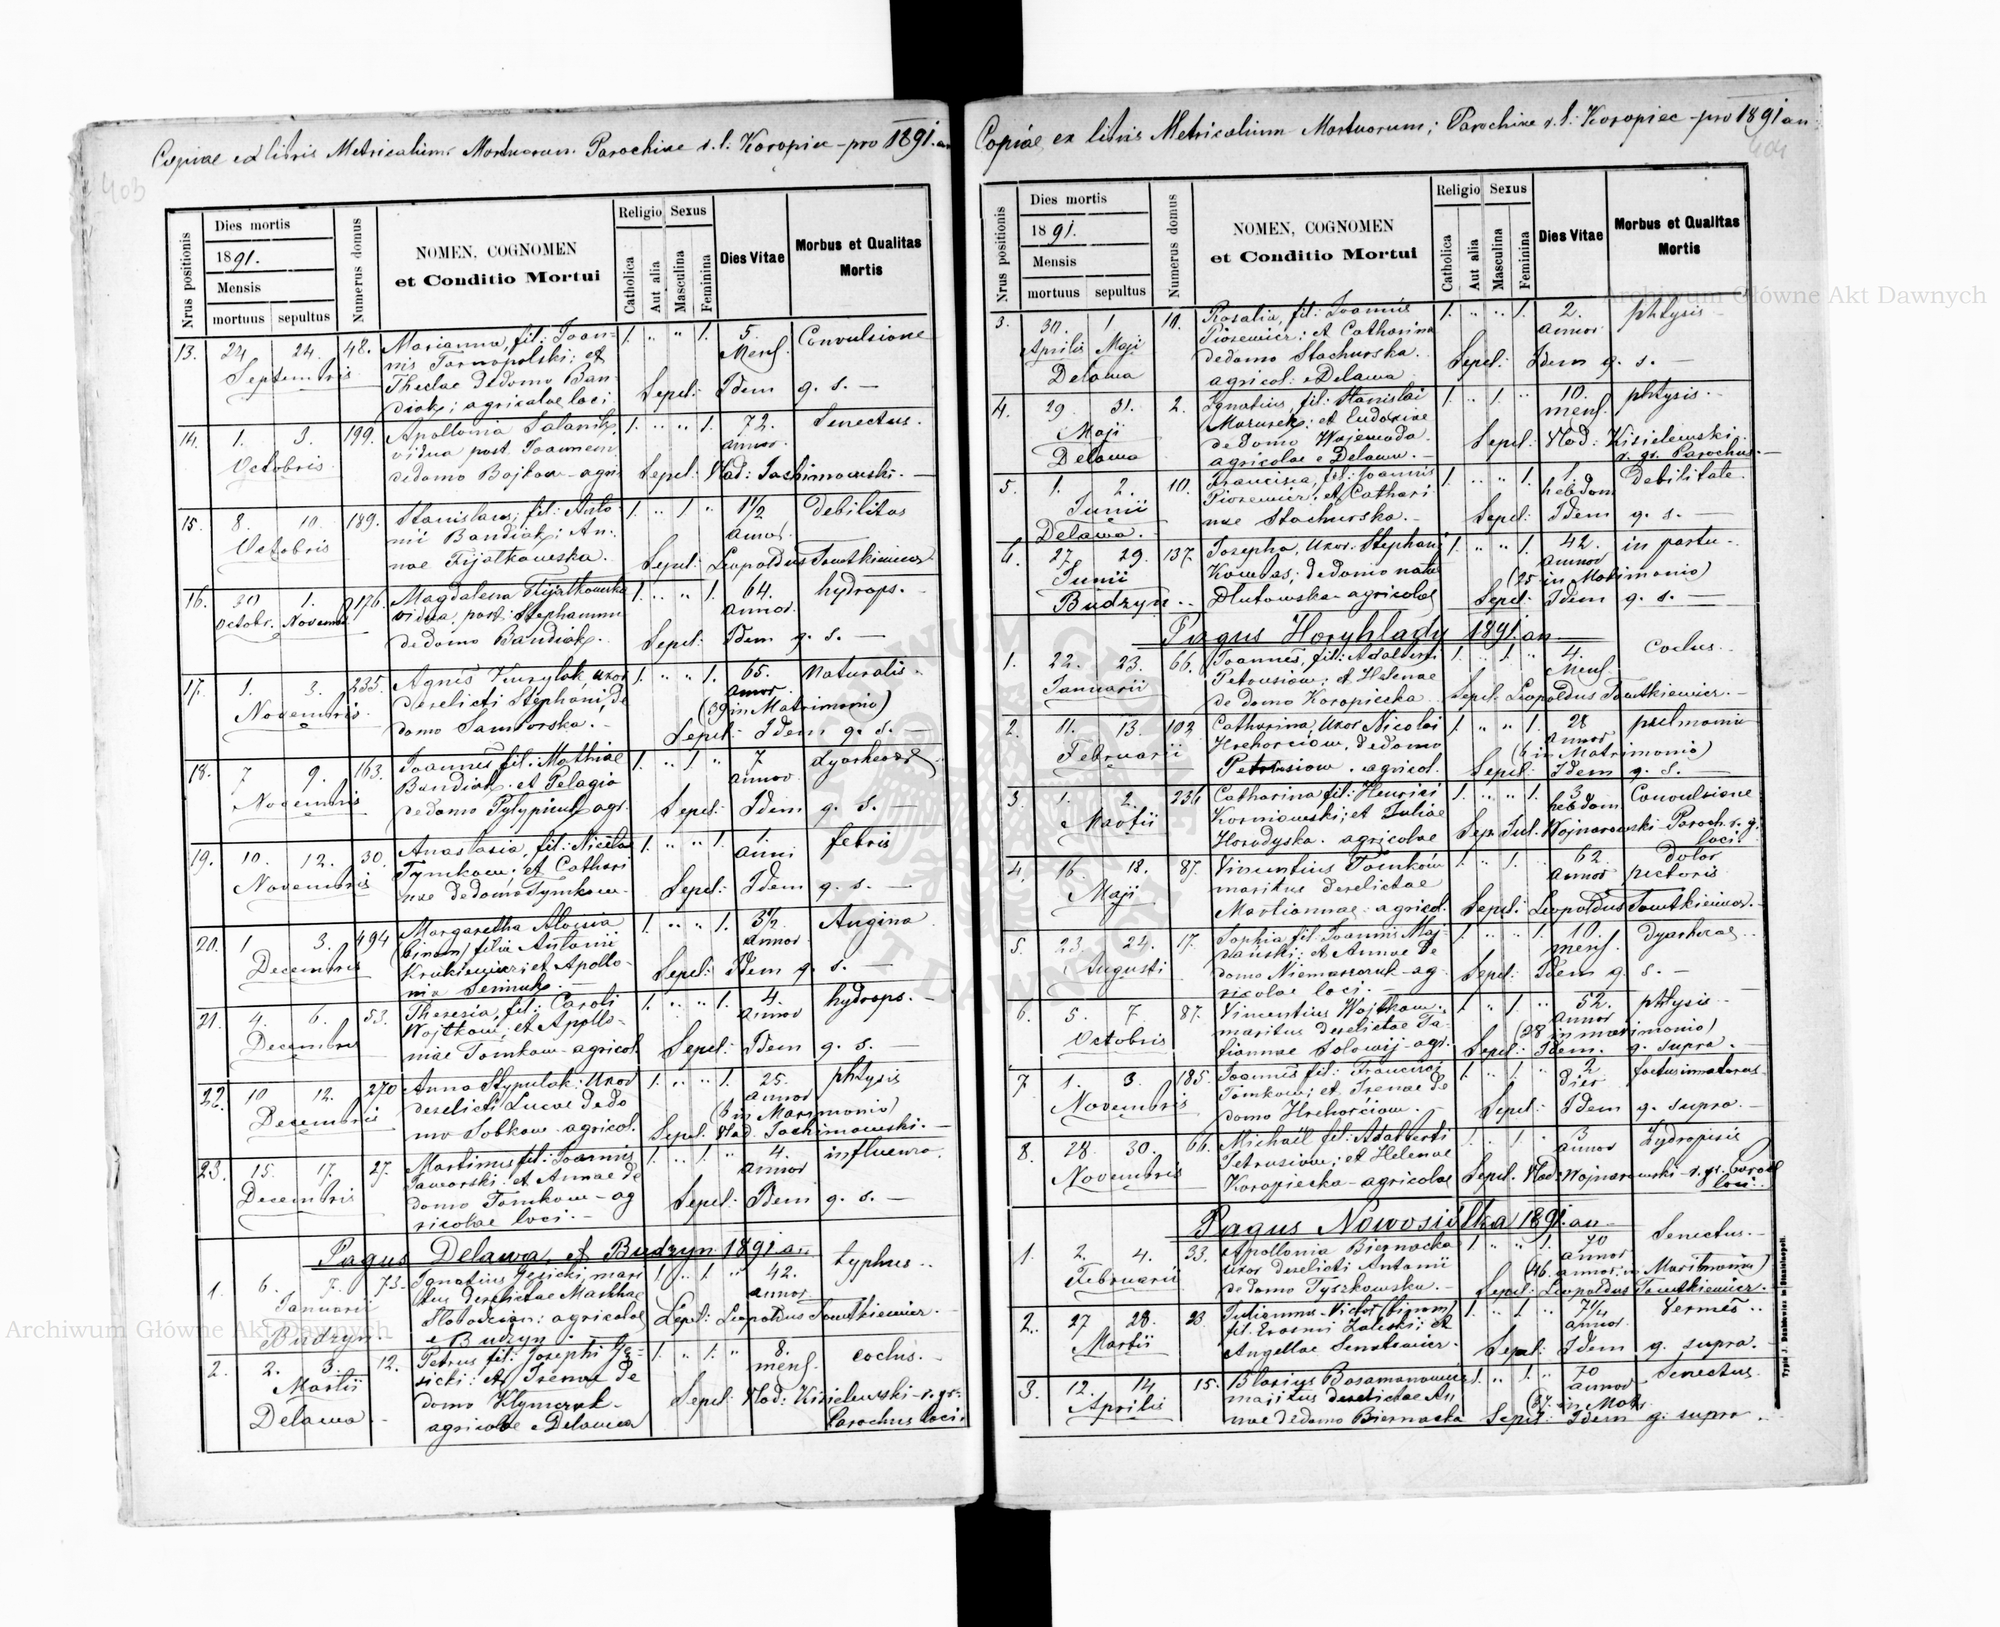 Copiae ex libris Metricalium Mortuorum Parochiae r. l. Koropiec – pro 1891 an
403
Nrus positionis
Dies mortis
1891.
Mensis
mortuus sepultus
Numerus domus
NOMEN, COGNOMEN
et Conditio Mortui
Religio Sexus
Catholica
Aut alia
Masculina
Feminina
Dies Vitae
Morbus et Qualitas
Mortis
13. 24 24. 48. Marianna, fil: Joan- 1. " " 1. 5. Convulsione
Septembris nis Tarnopolski; et Mens.
Theclae de domo Ban- Sepel: Idem q. s. —
diak; agricolae loci
14. 1. 3. 199. Apollonia 1. " " 1. 72. Senectus.
Octobris vidua post Joannem annor.
de domo Bojkow – agri Sepel: Vlad: Jachimowski. —
15. 8. 10. 189. Stanislaus; fil: Anto- 1. " 1 " 1 1/2 debilitas
Octobris nii Bandiak; An- annor.
nae Fijałkowska. Sepel: Leopoldus
16. 30 1. 176. Magdalena Fijałkowska 1. " " 1. 64. hydrops.
Octobr. Novemb vidua, post: Stephanum annor.
de domo Bandiak. Sepel: Idem q. s. —
17. 1. 3. 235. Agnes Kurylak uxor 1. " " 1. 65. Naturalis.
Novembris derelicti Stephani, de annor.
domo Samborska. — (39 in Matrimonio)
Sepel: Idem q. s. —
18. 7 9. 163. Joannes fil: Mathiae 1. " 1 " 7
Novembris Bandiak et Pelagia annor.
de domo agr. Sepel: Idem q. s. —
19. 10. 12. 30. Anastasia, fil: Nicolai 1. " " 1. 1. febris
Novembris Tymkow; et Cathari anni
nae de domo Tymkow. Sepel: Idem q. s. —
20. 1 3. 494 Margaretha Aloysia 1. " " 1. 3 1/2 Angina
Decembris (binom) filia Antonii annor
Krukiewicz; et Apollo- Sepel: Idem q. s. —
nia
21. 4. 6. 53. Theresia, fil: Caroli 1. " " 1. 4. hydrops. —
Decembris Wojtkow; et Apollo- annor
niae Tomkow – agricol. Sepel: Idem q. s. —
22. 10 12. 270 Anna Stypulak: Uxor 1. " " 1. 25. phtysis
Decembris derelicti Lucae de do annor
mo Sobkow – agricol. (6 in Matrimonio)
Sepel. Vlad. Jachimowski. —
23. 15. 17. 27. Martinus fil: Joannis 1. " 1. " 4. influenza.
Decembris Jaworski: et Annae de annor
domo Tomkow – ag Sepel: Idem q. s. —
ricolae loci. —
Pagus Delawa, et Budzyn 1891 an.
1. 6. 7. 73. Ignatius mari 1. " 1. " 42. typhus..
Januarii tus derelictae Marthae annor
Slobodzian: agricolae Sepel: Leopoldus
Budzyn e Budzyn.
2. 2. 3. 12. Petrus fil: Josephi 1. " 1. " 8. coclus. —
Martii et Irenae de mens.
Delawa domo Klymczuk – Sepel: Vlad: Kisielewski – r. gr.
agricolae e Delawa Parochus loci.
Copiae ex libris Metricalium Mortuorum; Parochiae r. l: Koropiec – pro 1891 an:
404
Nrus positionis
Dies mortis
1891.
Mensis
mortuus sepultus
Numerus domus
NOMEN, COGNOMEN
et Conditio Mortui
Religio Sexus
Catholica
Aut alia
Masculina
Feminina
Dies Vitae
Morbus et Qualitas
Mortis
3. 30. 1 10. Rosalia, fil: Joannis 1. " " 1. 2. phtysis –
Aprilis Maji et Catharina annor.
Delawa de domo Stachurska. Sepel: Idem q. s. —
agricol: e Delawa
4. 29 31. 2. Ignatius, fil: Stanislai 1. " 1. " 10. phtysis. –
Maji Mazurek; et Eudoxiae mens.
Delawa de domo Wojewoda. Sepel: Vlad: Kisielewski
agricolae e Delawa. — r. gr. Parochus. —
5. 1. 2. 10. Francisca, fil: Joannis 1. " " 1. 1. Debilitate.
Junii et Cathari hebdom
nae Stachurska. — Sepel: Idem q. s. —
Delawa. –
6. 27 29 137. Josepha, Uxor. Stephani 1. " " 1. 42. in partu –
Junii Kowcas; de domo nata annor
Budzyn.. Dlutowska – agricolae (25 in Matimonio)
Sepel: Idem q. s. —
Pagus Horyhlady 1891 an
1. 22. 23. 66. Joannes, fil: Adalberti 1. " 1. " 4. Coclus..
Januarii Petrusiow; et Helenae Mens.
de domo Koropiecka Sepel: Leopoldus
2. 11. 13. 102. Catharina, Uxor Nicolai 1. " " 1. 28
Februarii Hrehorciow, de domo annor
Petrusiow. agricol. (6 in Matrimonio)
Sepel: Idem q. s. —
3. 1. 2. 236 Catharina, fil: Henrici 1. " " 1. 3 Convulsione
Martii et Juliae hebdom
Horodyska. agricolae Sep. Jul. Wojnarowski Paroch. r. g.
loci.
4. 16 18. 87. Vincentius Tomków 1. " 1. 62 dolor
Maji maritus derelictae annor pectoris
Mariannae – agricol. Sepel: Leopoldus
5. 23 24. 17. Sophia fil Joannis Maj- 1. " " 1. 10. dyarheae..
Augusti dański; et Annae de mens.
domo ag Sepel: Idem q. s. —
ricolae loci. —
6. 5. 7. 87. Vincentius Wojtkow. 1. " 1. " 52. phtysis –
Octobris maritus derelictae Ta- annor
Solowij – agr. (28 in matrimonio)
Sepel: Idem. q. supra. —
7. 1. 3. 185. Joannes fil: Francisci 1. " 1. " 2 foetus inmaturus
Novembris Tomkow; et Irenae de dier
domo Hrehorciow. — Sepel: Idem q. supra. —
8. 28 30. 66. Michaël fil: Adalberti 1. " 1. " 3 hydropisis
Novembris Petrusiow; et Helenae annor
Koropiecka – agricolae Sepel. Vlad: Wojnarowski – r. gr.
loci.
Pagus Nowosiółka 1891. an –
1. 2. 4. 33. Apollonia Biernacka 1. " " 1. 70 Senectus. –
Februarii uxor derelicti Antonii annor
de domo Tyszkowska. — (46. annor. in Matrimonio)
Sepel: Leopoldus
2. 27 28. 23. Julianna – Victor (binom) 1. " 1. " 7 1/4 Vermes..
Martii fil. Erasmi Zaleski; et annor.
Angellae Sepel: Idem q. supra. —
3. 12. 14 15. Blasius 1. " 1. " 70 Senectus
Aprilis maritus derelictae An annor
nae de domo Biernacka (37. in Matr.
Sepel: Idem q. supra.
Typis J. Dankiewicz in Stanislaopoli.
Archiwum Główne Akt Dawnych
Archiwum Główne Akt Dawnych